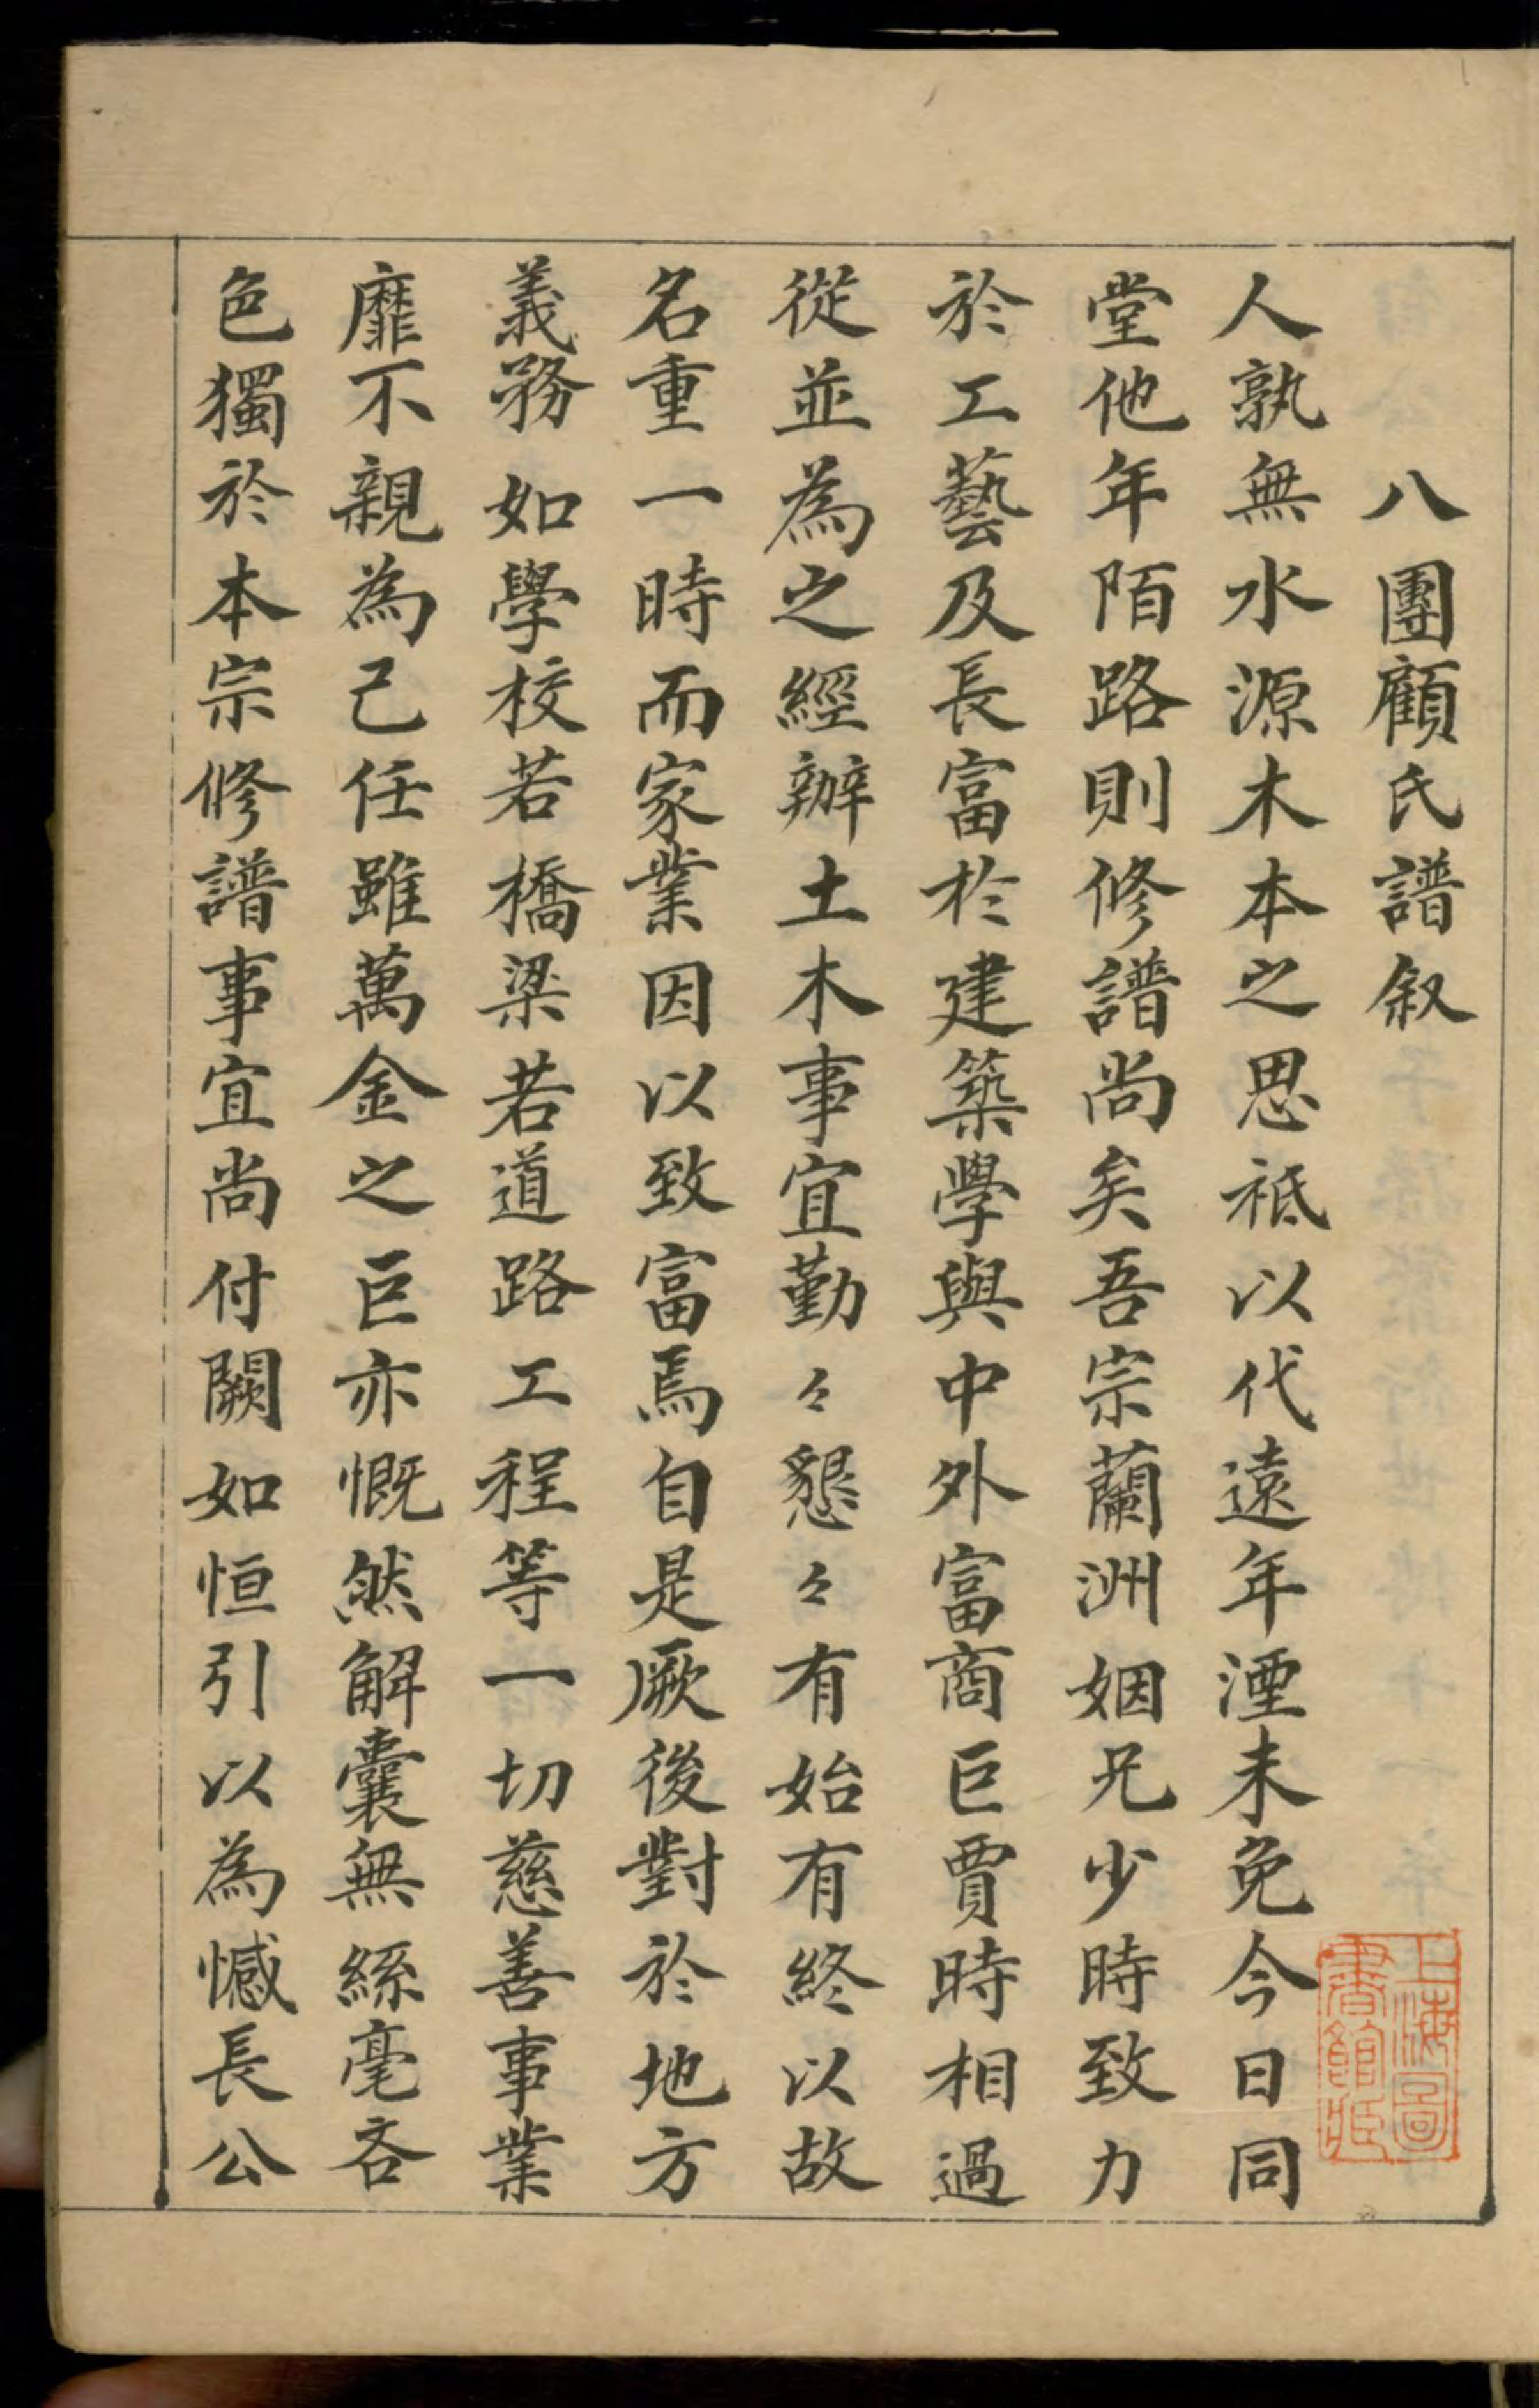 八團顧氏譜叙
人孰無水源木本之思祗以代遠年湮未免今日同
堂他年陌路則修譜尚矣吾宗蘭洲姻兄少時致力
於工藝及長富於建築學與中外富商巨賈時相過
從並為之經辦土木事宜勤々懇々有始有終以故
名重一時而家業因以致富焉自是厥後對於地方
義務如學校若橋梁若道路工程等一切慈善事業
靡不親為己任雖萬金之巨亦慨然解囊無絲毫吝
色獨於本宗修譜事宜尚付闕如恒引以為憾長公
上海圖書館藏